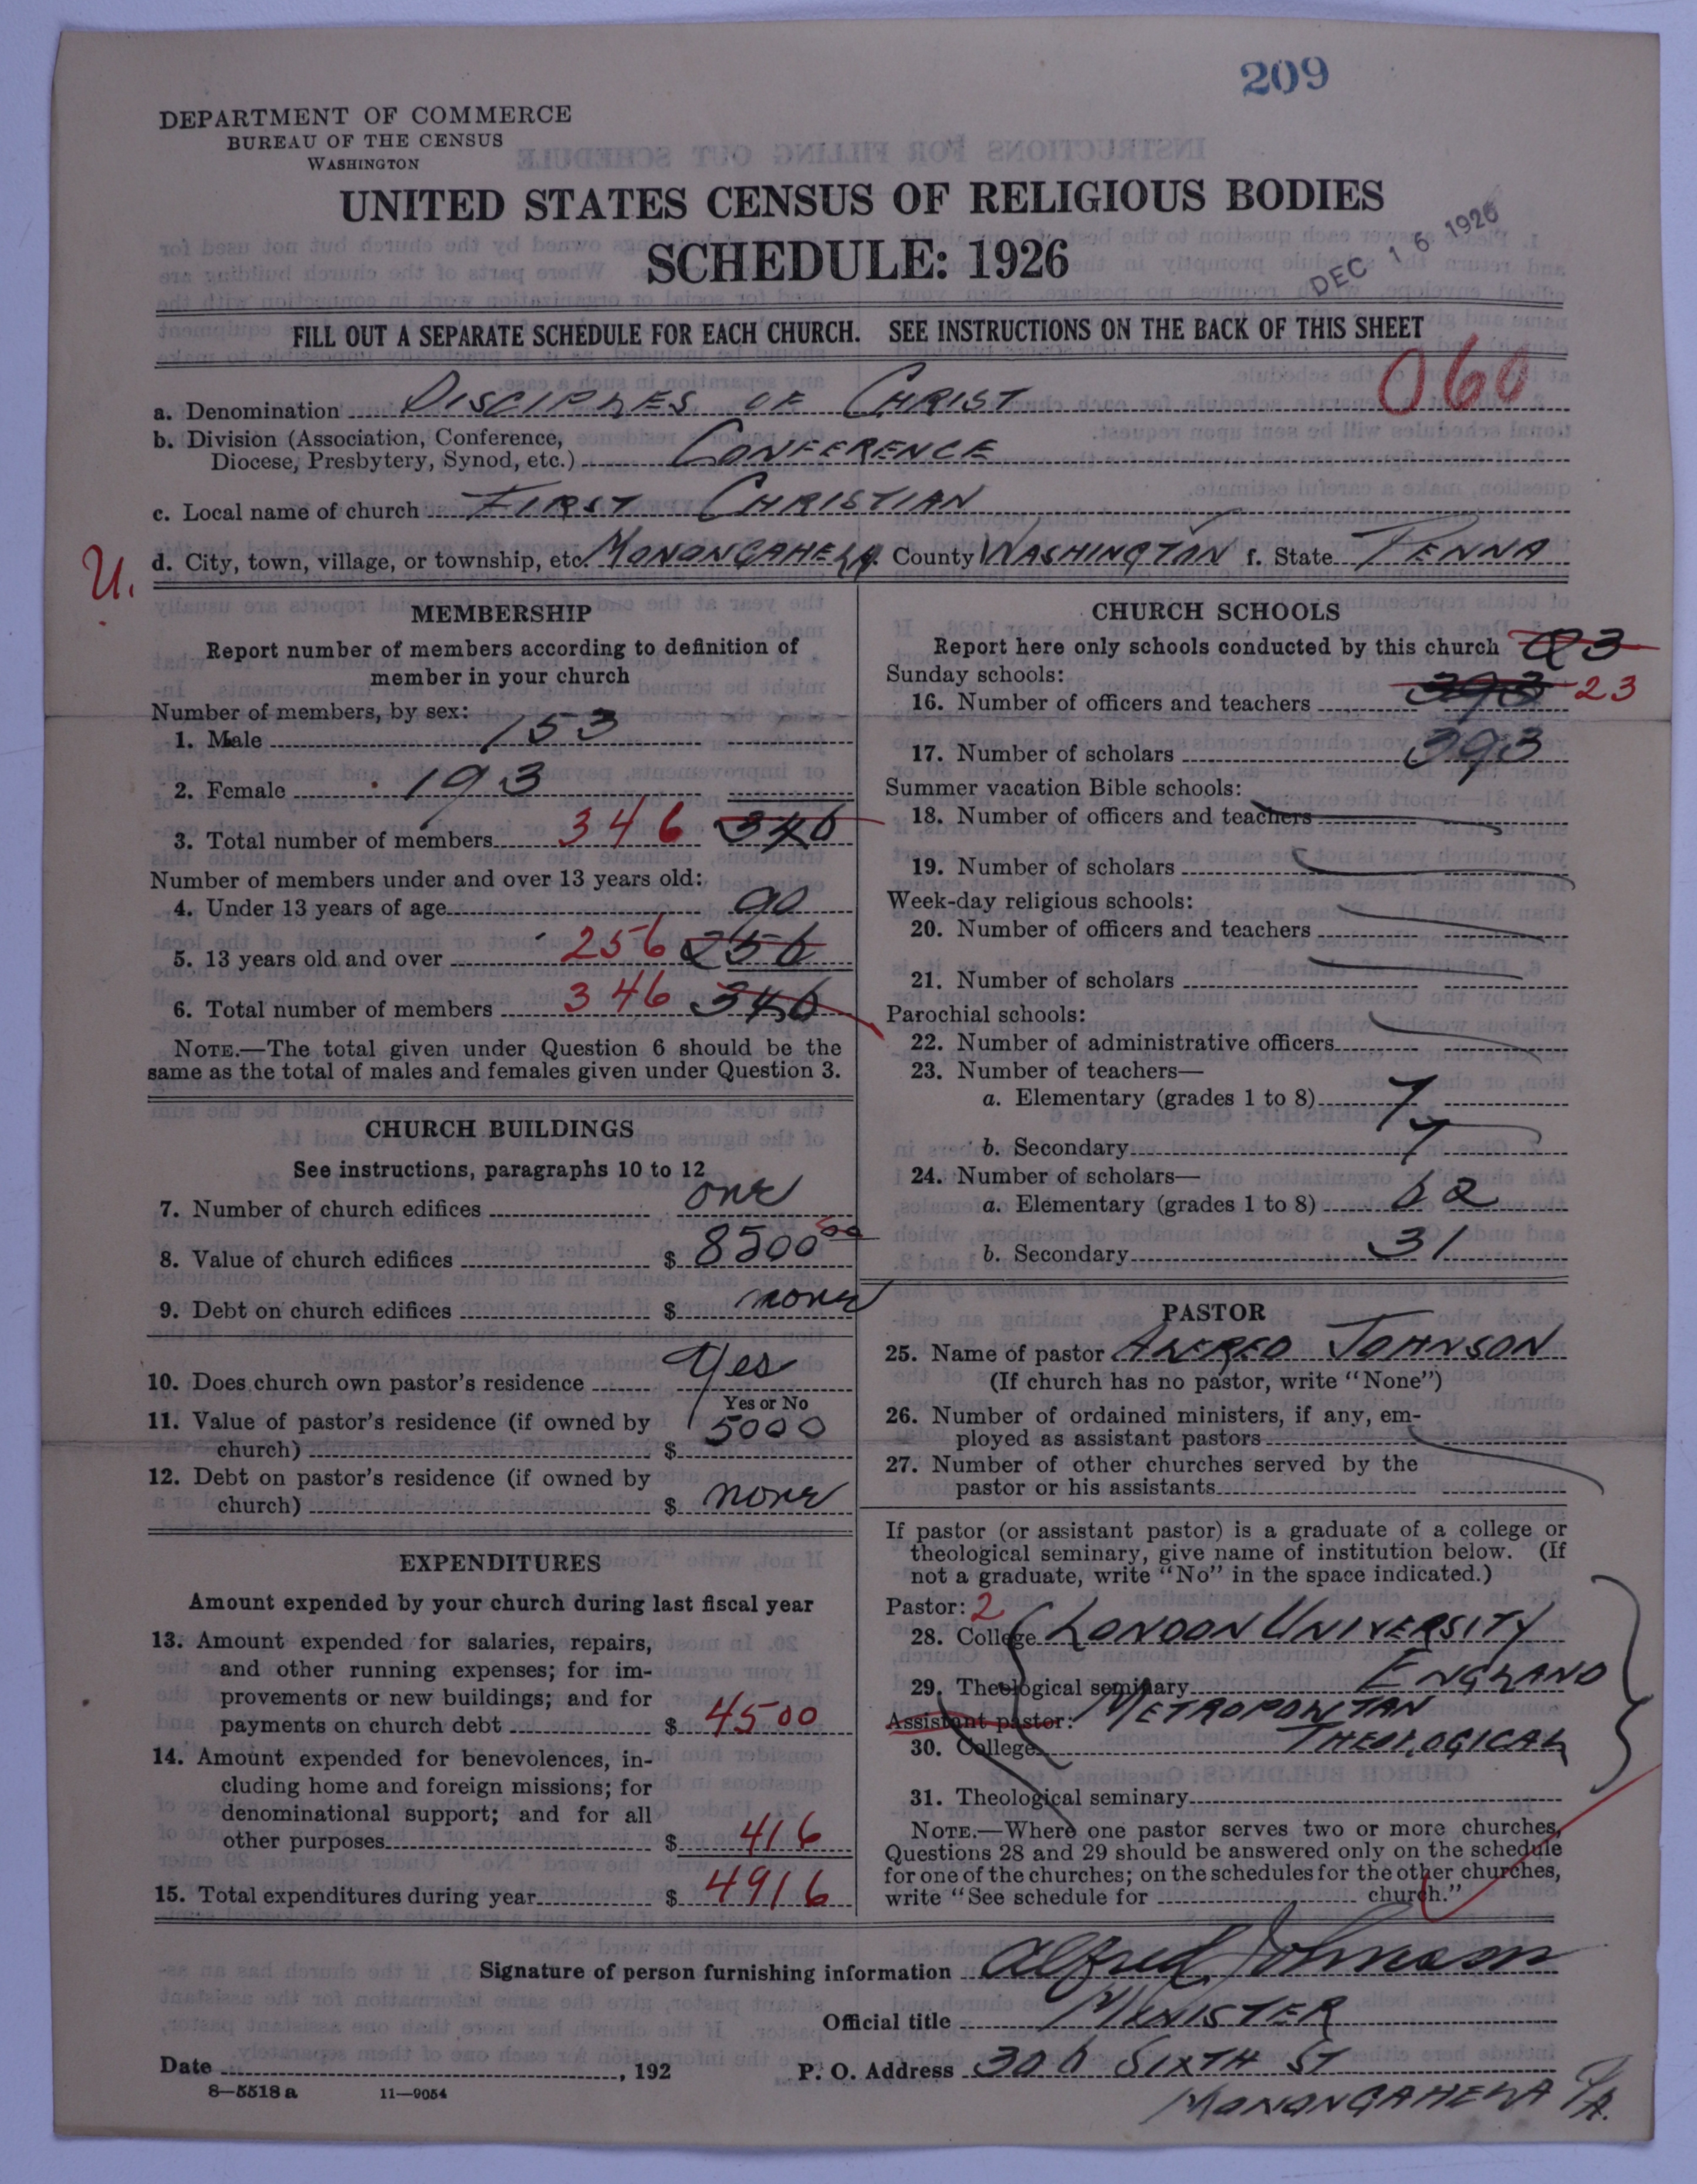 209
DEPARTMENT OF COMMERCE
BUREAU OF THE CENSUS
WASHINGTON
UNITED STATES CENSUS OF RELIGIOUS BODIES
SCHEDULE: 1926
DEC 16 1926
FILL OUT A SEPARATE SCHEDULE FOR EACH CHURCH. SEE INSTRUCTIONS ON THE BACK OF THIS SHEET
060
a. Denomination DISCIPLES OF CHRIST
b. Division (Association, Conference,
Diocese, Presbytery, Synod, etc.) CONFERENCE
c. Local name of church FIRST CHRISTIAN
U. d. City, town, village, or township, etc. MONONGAHELA County WASHINGTON f. State PENNA
MEMBERSHIP
Report number of members according to definition of
member in your church
Number of members, by sex:
1. Male 153
2. Female 193
3. Total number of members 346 346
Number of members under and over 13 years old:
4. Under 13 years of age 90
5. 13 years old and over 256 256
6. Total number of members 346 346
NOTE.—The total given under Question 6 should be the
same as the total of males and females given under Question 3.
CHURCH BUILDINGS
See instructions, paragraphs 10 to 12
7. Number of church edifices one
8. Value of church edifices $ 8500 00
9. Debt on church edifices $ none
10. Does church own pastor's residence Yes
Yes or No
11. Value of pastor's residence (if owned by
church) $ 5000
12. Debt on pastor's residence (if owned by
church) $ none
EXPENDITURES
Amount expended by your church during last fiscal year
13. Amount expended for salaries, repairs,
and other running expenses; for im-
provements or new buildings; and for
payments on church debt $ 4500
14. Amount expended for benevolences, in-
cluding home and foreign missions; for
denominational support; and for all
other purposes $ 416
15. Total expenditures during year $ 4916
CHURCH SCHOOLS
Report here only schools conducted by this church 23
Sunday schools:
16. Number of officers and teachers 393 23
17. Number of scholars 393
Summer vacation Bible schools:
18. Number of officers and teachers
19. Number of scholars
Week-day religious schools:
20. Number of officers and teachers
21. Number of scholars
Parochial schools:
22. Number of administrative officers
23. Number of teachers—
a. Elementary (grades 1 to 8) 7
b. Secondary 7
24. Number of scholars—
a. Elementary (grades 1 to 8) 62
b. Secondary 31
PASTOR
25. Name of pastor ALFRED JOHNSON
(If church has no pastor, write "None")
26. Number of ordained ministers, if any, em-
ployed as assistant pastors
27. Number of other churches served by the
pastor or his assistants
If pastor (or assistant pastor) is a graduate of a college or
theological seminary, give name of institution below. (If
not a graduate, write "No" in the space indicated.)
Pastor: 2
28. College LONDON UNIVERSITY
29. Theological seminary ENGLAND
Assistant pastor: METROPOLITAN
30. College THEOLOGICAL
31. Theological seminary
NOTE.—Where one pastor serves two or more churches,
Questions 28 and 29 should be answered only on the schedule
for one of the churches; on the schedules for the other churches,
write "See schedule for church."
Signature of person furnishing information Alfred Johnson
Official title MINISTER
Date , 192 P. O. Address 306 SIXTH ST
8—5518 a 11—9054
MONONGAHELA PA.